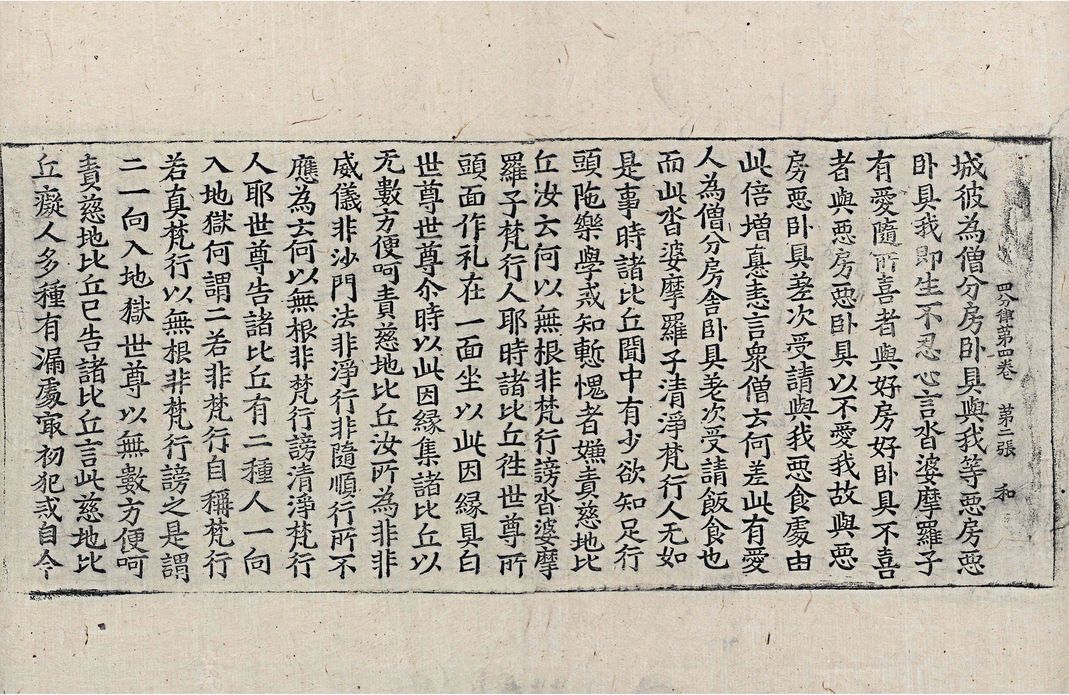 四分律第四卷 第二張 和
城彼為僧分房卧具與我等惡房惡
卧具我即生不忍心言沓婆摩羅子
有愛隨所喜者與好房好卧具不喜
者與惡房惡卧具以不愛我故與惡
房惡卧具差次受請與我惡食處由
此倍增恚恚言衆僧云何差此有愛
人為僧分房舍卧具差次受請飯食也
而此沓婆摩羅子清淨梵行人无如
是事時諸比丘聞中有少欲知足行
頭陁樂學戒知慙愧者嫌責慈地比
丘汝云何以無根非梵行謗沓婆摩
羅子梵行人耶時諸比丘往世尊所
頭面作礼在一面坐以此因緣具白
世尊世尊尒時以此因緣集諸比丘以
无數方便呵責慈地比丘汝所為非非
威儀非沙門法非淨行非隨順行所不
應為云何以無根非梵行謗清淨梵行
人耶世尊告諸比丘有二種人一向
入地獄何謂二若非梵行自稱梵行
若真梵行以無根非梵行謗之是謂
二一向入地獄世尊以無數方便呵
責慈地比丘已告諸比丘言此慈地比
丘癡人多種有漏處㝡初犯戒自今